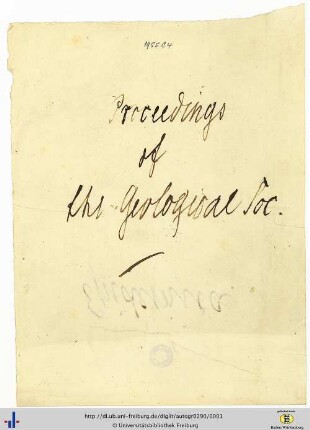 Proceedings
of
the Geological Soc.
http://dl.ub.uni-freiburg.de/diglit/autogr0290/0001
© Universitätsbibliothek Freiburg